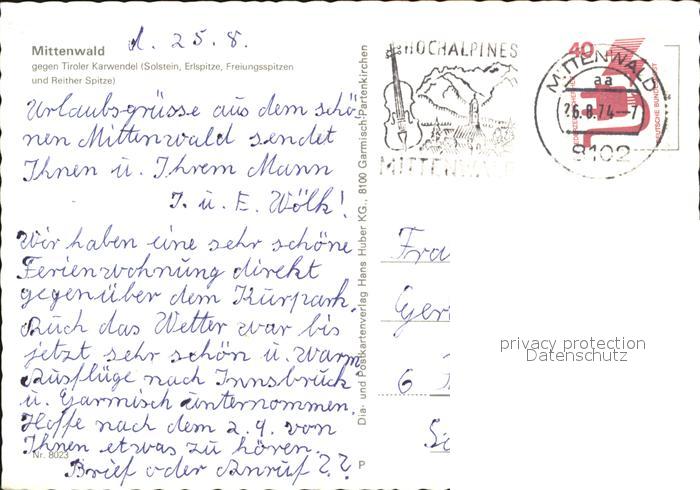 Mittenwald
d. 25. 8.
gegen Tiroler Karwendel (Solstein, Erlspitze, Freiungsspitzen
und Reither Spitze)
Urlaubsgrüsse aus dem schö-
nen Mittenwald sendet
Ihnen u. Ihrem Mann
I. u. E. Wölk!
Wir haben eine sehr schöne
Ferienwohnung direkt
gegenüber dem Kurpark.
Auch das Wetter war bis
jetzt sehr schön u. warm
Ausflüge nach Innsbruck
u. Garmisch unternommen.
Hoffe nach dem 2.9. von
Ihnen etwas zu hören.
Nr. 8023
Brief oder Anruf??
Dia- und Postkartenverlag Hans Huber KG., 8100 Garmisch-Partenkirchen
P
HOCHALPINES
MITTENWALD
40
DEUTSCHE BUNDESPOST
MITTENWALD
aa
26.8.74-7
8102
Fra
Ger
6
privacy protection
Datenschutz